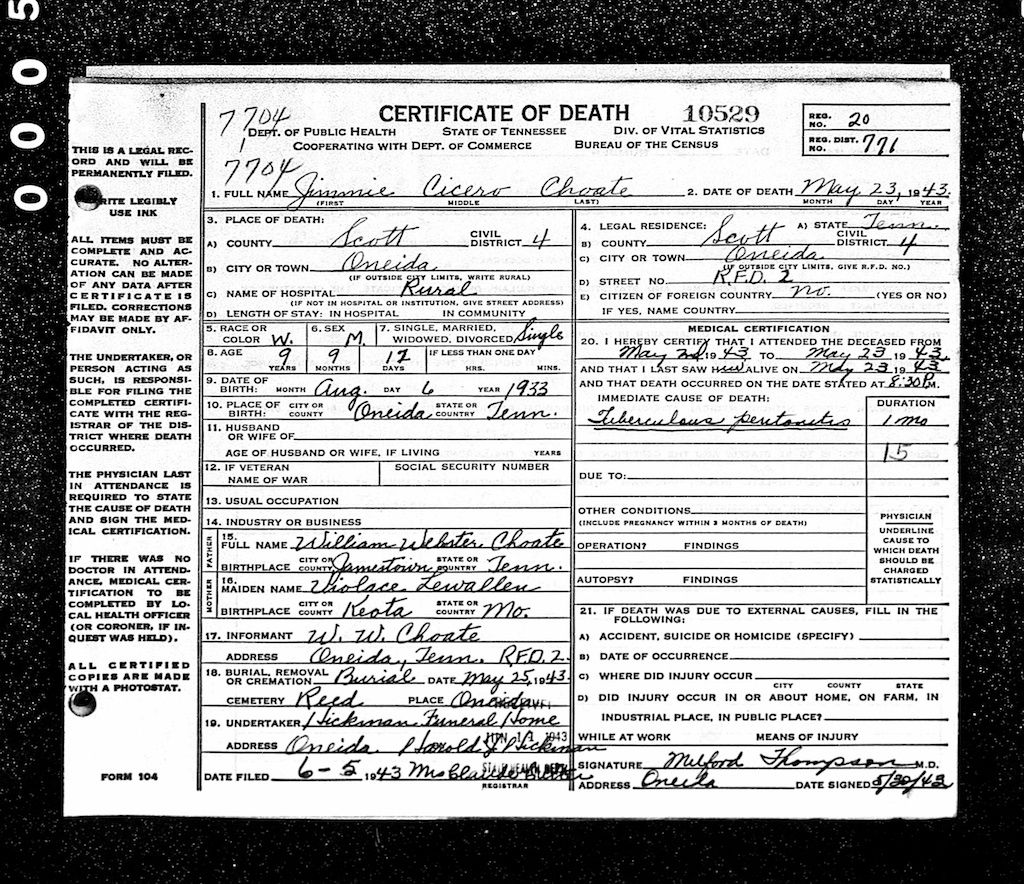 0005
7704
1
7704
CERTIFICATE OF DEATH 10529
DEPT. OF PUBLIC HEALTH STATE OF TENNESSEE DIV. OF VITAL STATISTICS
COOPERATING WITH DEPT. OF COMMERCE BUREAU OF THE CENSUS
REG. NO. 20
REG. DIST. NO. 771
THIS IS A LEGAL REC-
ORD AND WILL BE
PERMANENTLY FILED.
RITE LEGIBLY
USE INK
ALL ITEMS MUST BE
COMPLETE AND AC-
CURATE. NO ALTER-
ATION CAN BE MADE
OF ANY DATA AFTER
CERTIFICATE IS
FILED. CORRECTIONS
MAY BE MADE BY AF-
FIDAVIT ONLY.
THE UNDERTAKER, OR
PERSON ACTING AS
SUCH, IS RESPONSI-
BLE FOR FILING THE
COMPLETED CERTIFI-
CATE WITH THE REG-
ISTRAR OF THE DIS-
TRICT WHERE DEATH
OCCURRED.
THE PHYSICIAN LAST
IN ATTENDANCE IS
REQUIRED TO STATE
THE CAUSE OF DEATH
AND SIGN THE MED-
ICAL CERTIFICATION.
IF THERE WAS NO
DOCTOR IN ATTEND-
ANCE, MEDICAL CER-
TIFICATION TO BE
COMPLETED BY LO-
CAL HEALTH OFFICER
(OR CORONER, IF IN-
QUEST WAS HELD).
ALL CERTIFIED
COPIES ARE MADE
WITH A PHOTOSTAT.
FORM 104
1. FULL NAME Jimmie Cicero Choate 2. DATE OF DEATH May 23, 1943.
(FIRST) MIDDLE LAST) MONTH DAY YEAR
3. PLACE OF DEATH:
A) COUNTY Scott CIVIL DISTRICT 4
B) CITY OR TOWN Oneida
(IF OUTSIDE CITY LIMITS, WRITE RURAL)
C) NAME OF HOSPITAL Rural
(IF NOT IN HOSPITAL OR INSTITUTION, GIVE STREET ADDRESS)
D) LENGTH OF STAY: IN HOSPITAL IN COMMUNITY
4. LEGAL RESIDENCE: A) STATE Tenn.
B) COUNTY Scott CIVIL DISTRICT 4
C) CITY OR TOWN Oneida
(IF OUTSIDE CITY LIMITS, GIVE R.F.D. NO.)
D) STREET NO. R.F.D. 2
E) CITIZEN OF FOREIGN COUNTRY no. (YES OR NO)
IF YES, NAME COUNTRY
5. RACE OR COLOR W. 6. SEX M. 7. SINGLE, MARRIED, WIDOWED, DIVORCED Single
8. AGE 9 YEARS 9 MONTHS 17 DAYS IF LESS THAN ONE DAY HRS. MINS.
9. DATE OF BIRTH: MONTH Aug. DAY 6 YEAR 1933
10. PLACE OF BIRTH: CITY OR COUNTY Oneida STATE OR COUNTRY Tenn.
11. HUSBAND OR WIFE OF
AGE OF HUSBAND OR WIFE, IF LIVING YEARS
12. IF VETERAN NAME OF WAR SOCIAL SECURITY NUMBER
13. USUAL OCCUPATION
14. INDUSTRY OR BUSINESS
FATHER
15. FULL NAME William Webster Choate
BIRTHPLACE CITY OR COUNTY Jamestown STATE OR COUNTRY Tenn.
MOTHER
16. MAIDEN NAME Violace Lewallen
BIRTHPLACE CITY OR COUNTY Keota STATE OR COUNTRY Mo.
17. INFORMANT W. W. Choate
ADDRESS Oneida, Tenn. R.F.D. 2.
18. BURIAL, REMOVAL OR CREMATION Burial DATE May 25, 1943.
CEMETERY Reed PLACE Oneida
19. UNDERTAKER Hickman Funeral Home
ADDRESS Oneida. Harold J. Hickman
DATE FILED 6-5 1943 Mrs Claude
REGISTRAR
MEDICAL CERTIFICATION
20. I HEREBY CERTIFY THAT I ATTENDED THE DECEASED FROM
May 2nd, 1943 TO May 23 1943,
AND THAT I LAST SAW ALIVE ON May 23 1943
AND THAT DEATH OCCURRED ON THE DATE STATED AT 8:30P.M.
IMMEDIATE CAUSE OF DEATH: DURATION
Tuberculous peritonitis 1 mo
15
DUE TO:
OTHER CONDITIONS
(INCLUDE PREGNANCY WITHIN 3 MONTHS OF DEATH)
OPERATION? FINDINGS
AUTOPSY? FINDINGS
PHYSICIAN
UNDERLINE
CAUSE TO
WHICH DEATH
SHOULD BE
CHARGED
STATISTICALLY
21. IF DEATH WAS DUE TO EXTERNAL CAUSES, FILL IN THE
FOLLOWING:
A) ACCIDENT, SUICIDE OR HOMICIDE (SPECIFY)
B) DATE OF OCCURRENCE
C) WHERE DID INJURY OCCUR
CITY COUNTY STATE
D) DID INJURY OCCUR IN OR ABOUT HOME, ON FARM, IN
INDUSTRIAL PLACE, IN PUBLIC PLACE?
WHILE AT WORK MEANS OF INJURY
SIGNATURE Milford Thompson M.D.
ADDRESS Oneida DATE SIGNED 5/30/43